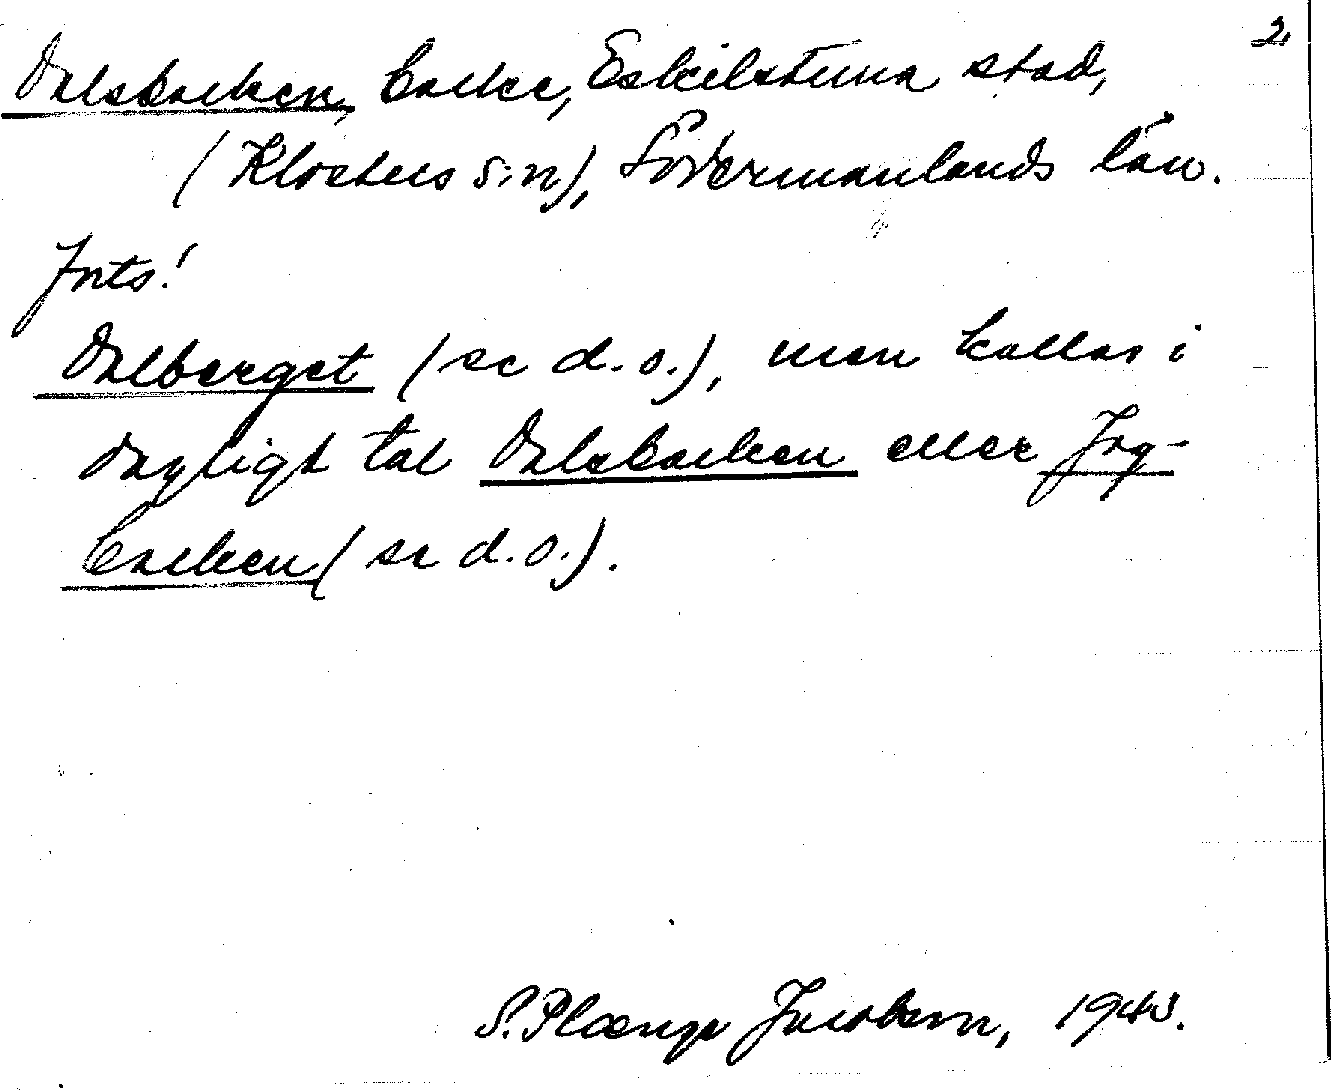 2.
Dalsbacken, backe, Eskilstuna stad,
(Klosters s:n), Södermanlands län.
Forts!
Dalberget (se d.o.), men kallas i
dagligt tal Dalsbacken eller Jag-
backen (se d.o.).
S. Plænge Jacobson, 1943.